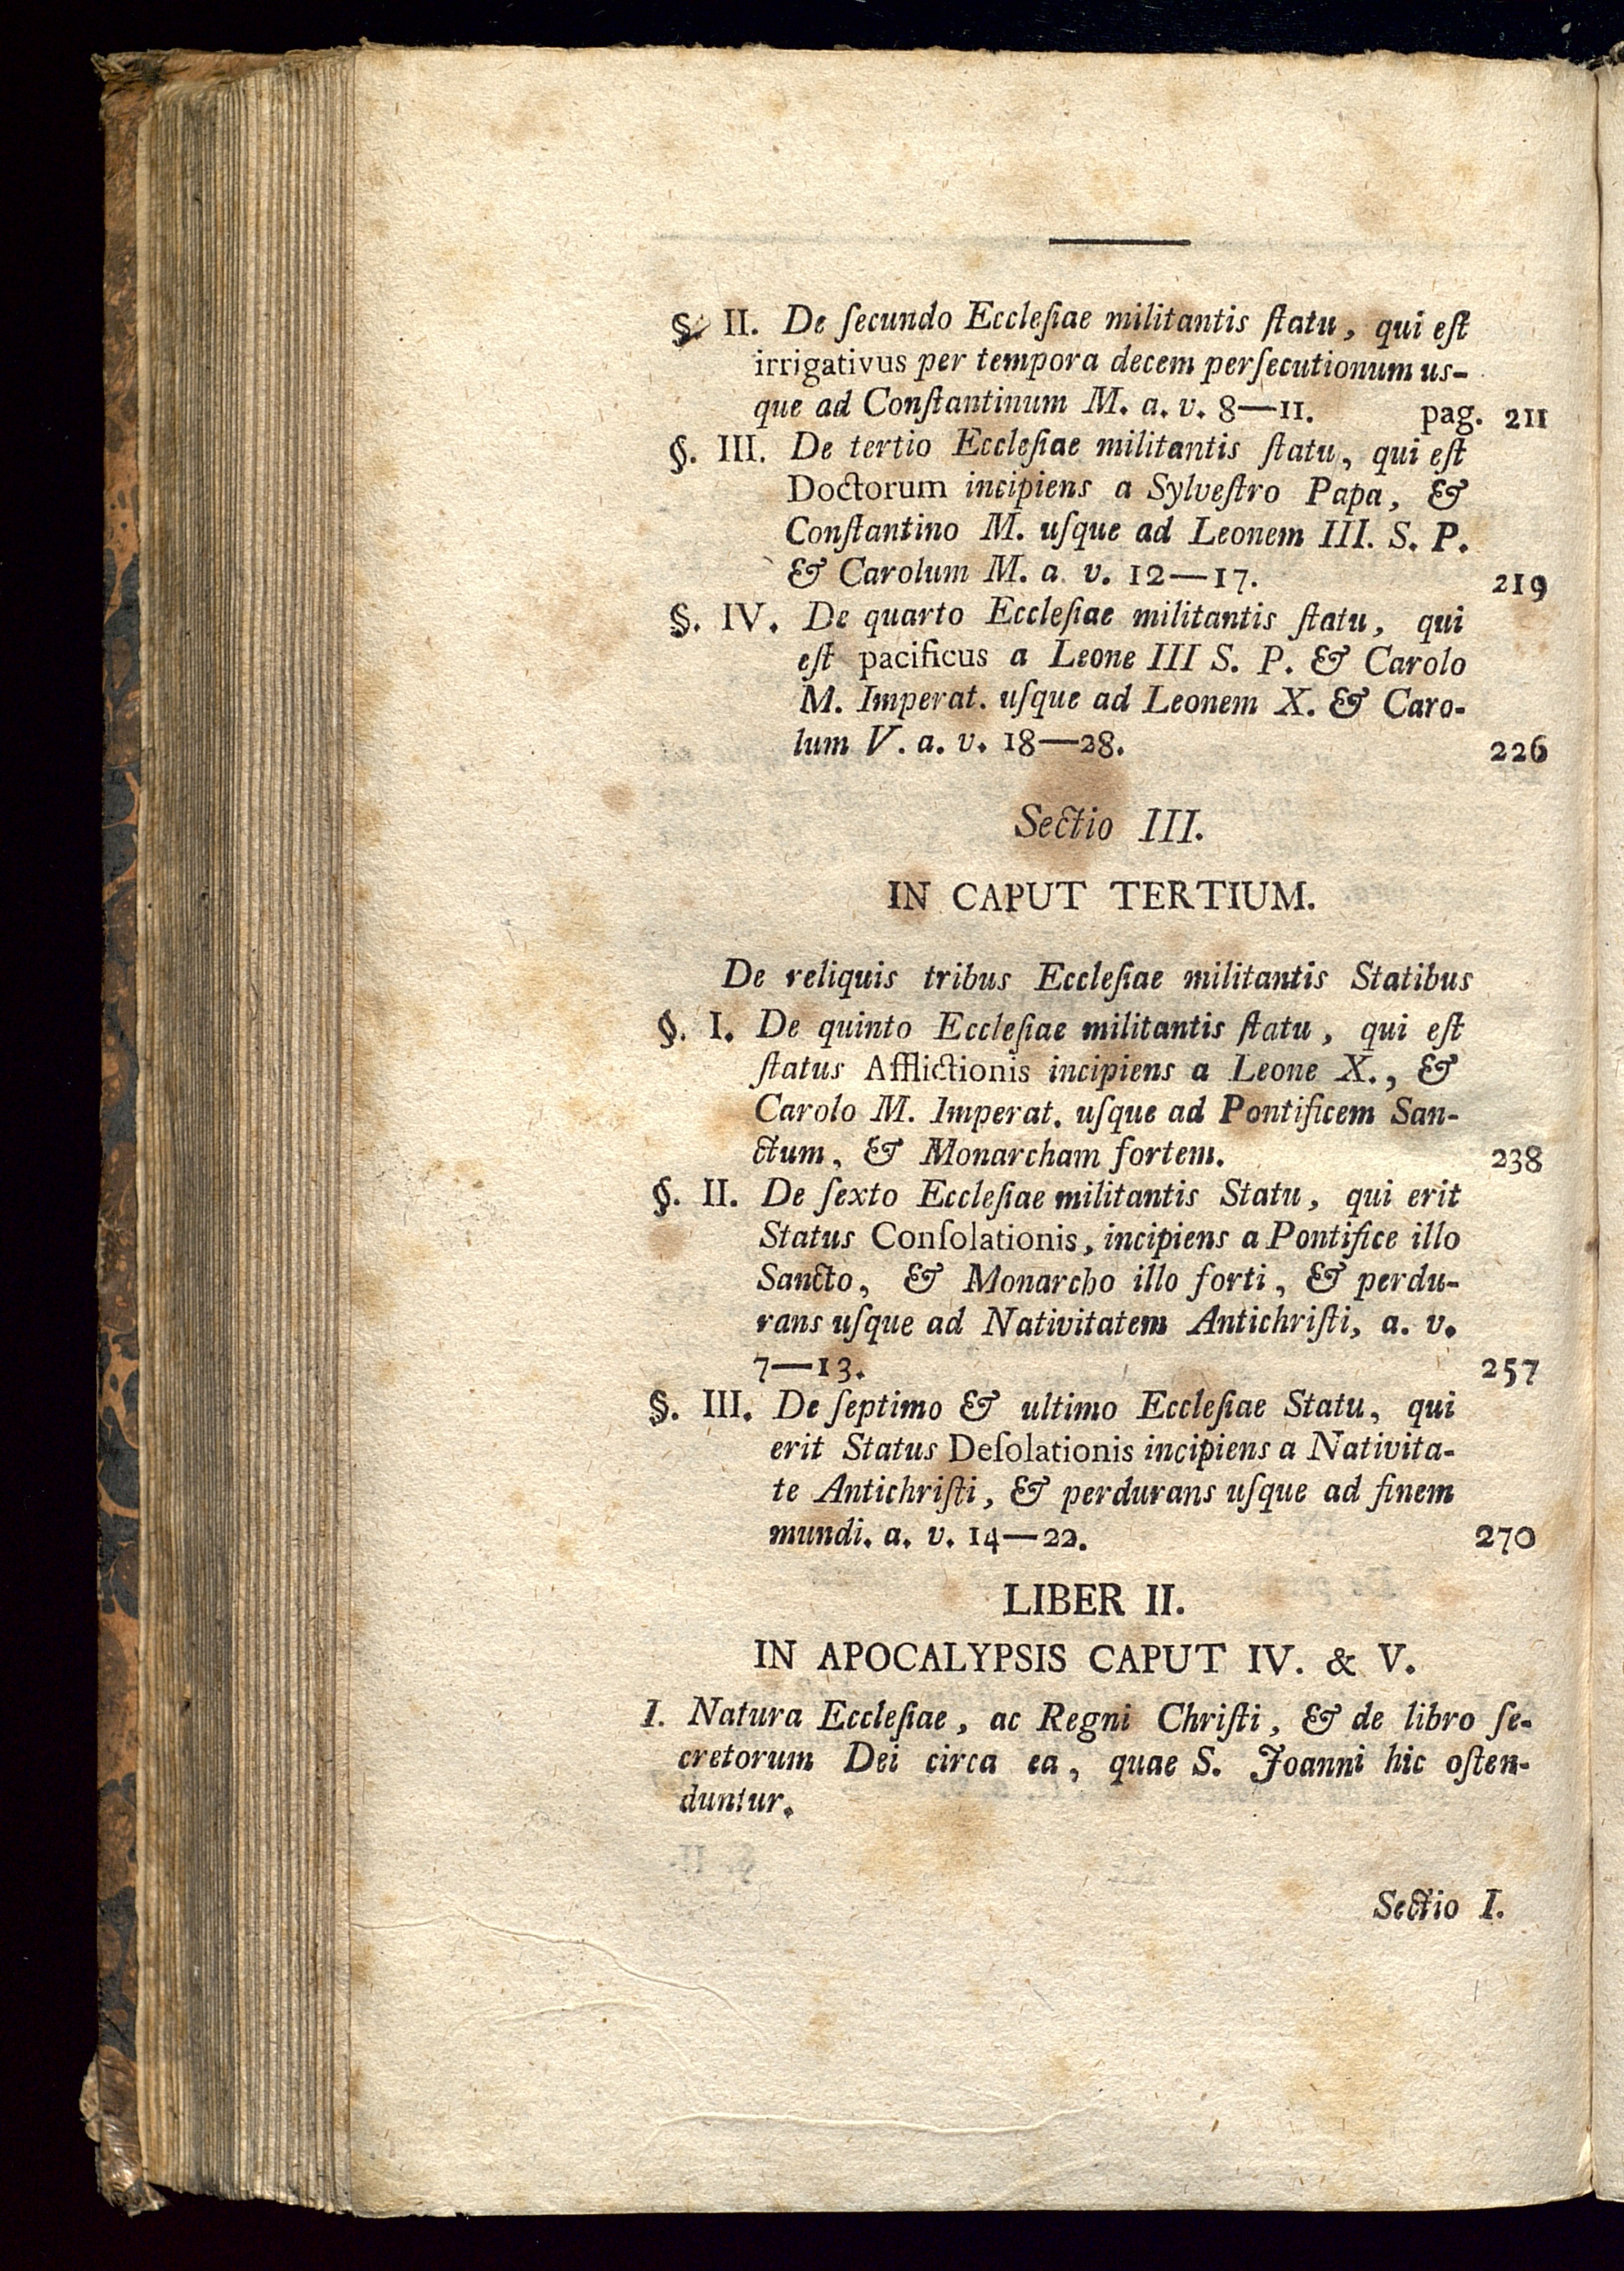 §. II. De ſecundo Eccleſiae militantis ſtatu, qui eſt
irrigativus per tempora decem perſecutionum us-
que ad Conſtantinum M. a. v. 8—11. pag. 211
§. III. De tertio Eccleſiae militantis ſtatu, qui eſt
Doctorum incipiens a Sylveſtro Papa, &
Conſtantino M. uſque ad Leonem III. S. P.
& Carolum M. a. v. 12—17. 219
§. IV. De quarto Eccleſiae militantis ſtatu, qui
eſt pacificus a Leone III S. P. & Carolo
M. Imperat. uſque ad Leonem X. & Caro-
lum V. a. v. 18—28. 226
Sectio III.
IN CAPUT TERTIUM.
De reliquis tribus Eccleſiae militantis Statibus
§. I. De quinto Eccleſiae militantis ſtatu, qui eſt
ſtatus Afflictionis incipiens a Leone X., &
Carolo M. Imperat. uſque ad Pontificem San-
ctum, & Monarcham fortem. 238
§. II. De ſexto Eccleſiae militantis Statu, qui erit
Status Conſolationis, incipiens a Pontifice illo
Sancto, & Monarcho illo forti, & perdu-
rans uſque ad Nativitatem Antichriſti, a. v.
7—13. 257
§. III. De ſeptimo & ultimo Eccleſiae Statu, qui
erit Status Deſolationis incipiens a Nativita-
te Antichriſti, & perdurans uſque ad finem
mundi. a. v. 14—22. 270
LIBER II.
IN APOCALYPSIS CAPUT IV. & V.
I. Natura Eccleſiae, ac Regni Chriſti, & de libro ſe-
cretorum Dei circa ea, quae S. Joanni hic oſten-
duntur.
Sectio I.